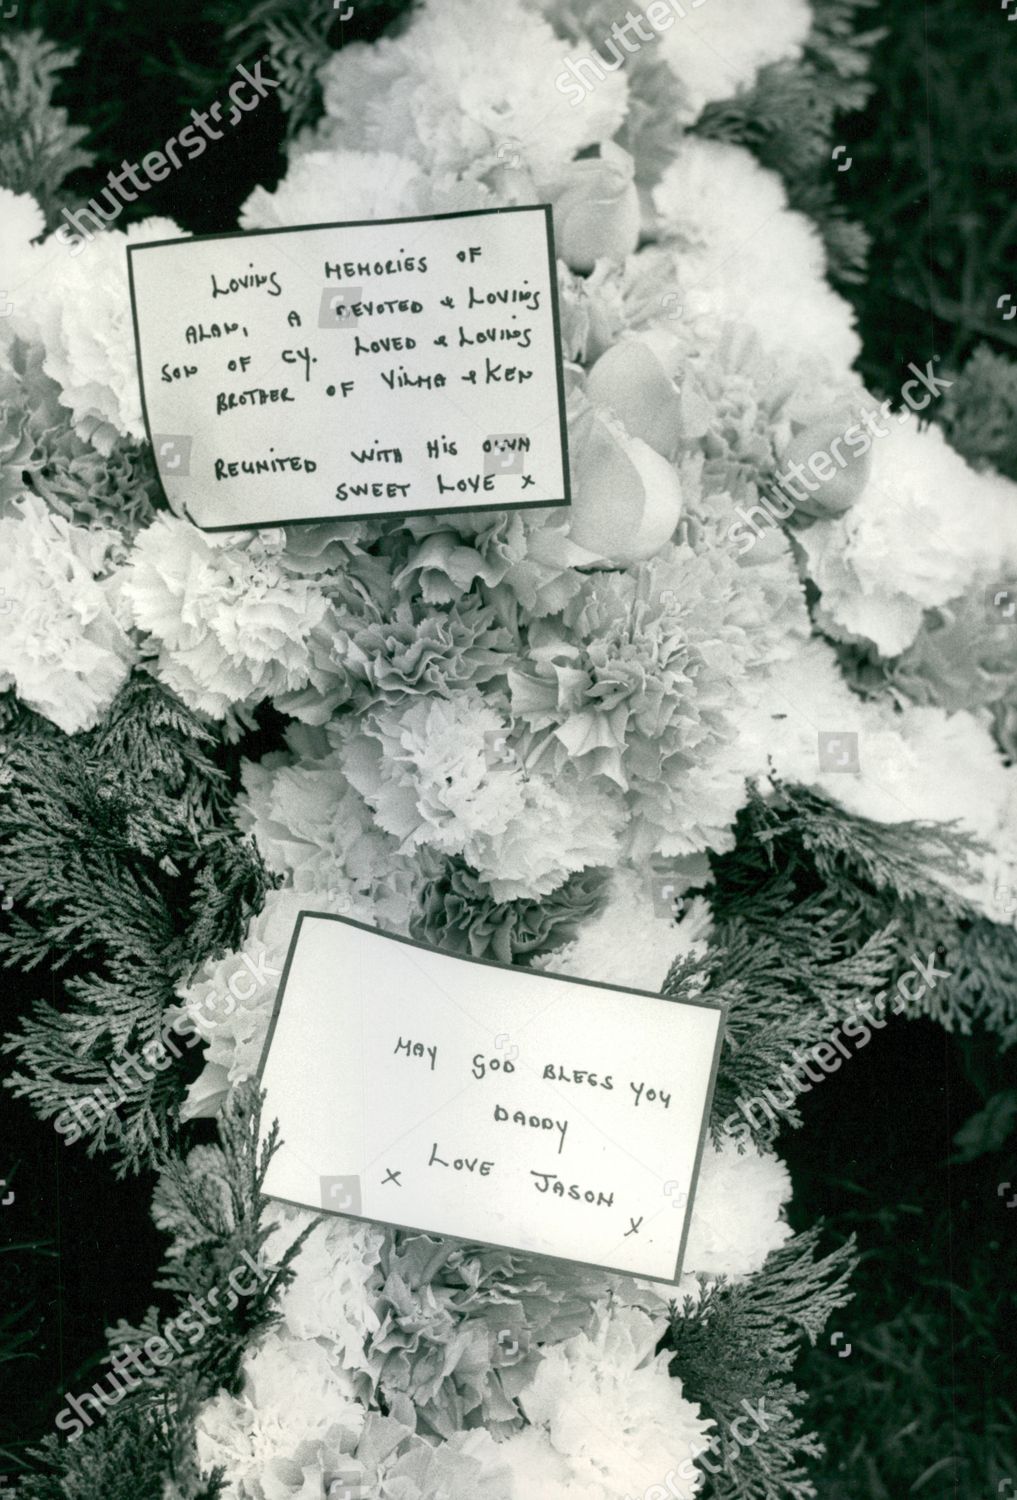 LOVING MEMORIES OF
ALAN, A DEVOTED & LOVING
SON OF CY. LOVED & LOVING
BROTHER OF VILMA & KEN
REUNITED WITH HIS OWN
SWEET LOVE X
MAY GOD BLESS YOU
DADDY
LOVE JASON
X X
shutterstock
shutterstock
shutterstock
shutterstock
shutterstock
shutterstock
shutterstock